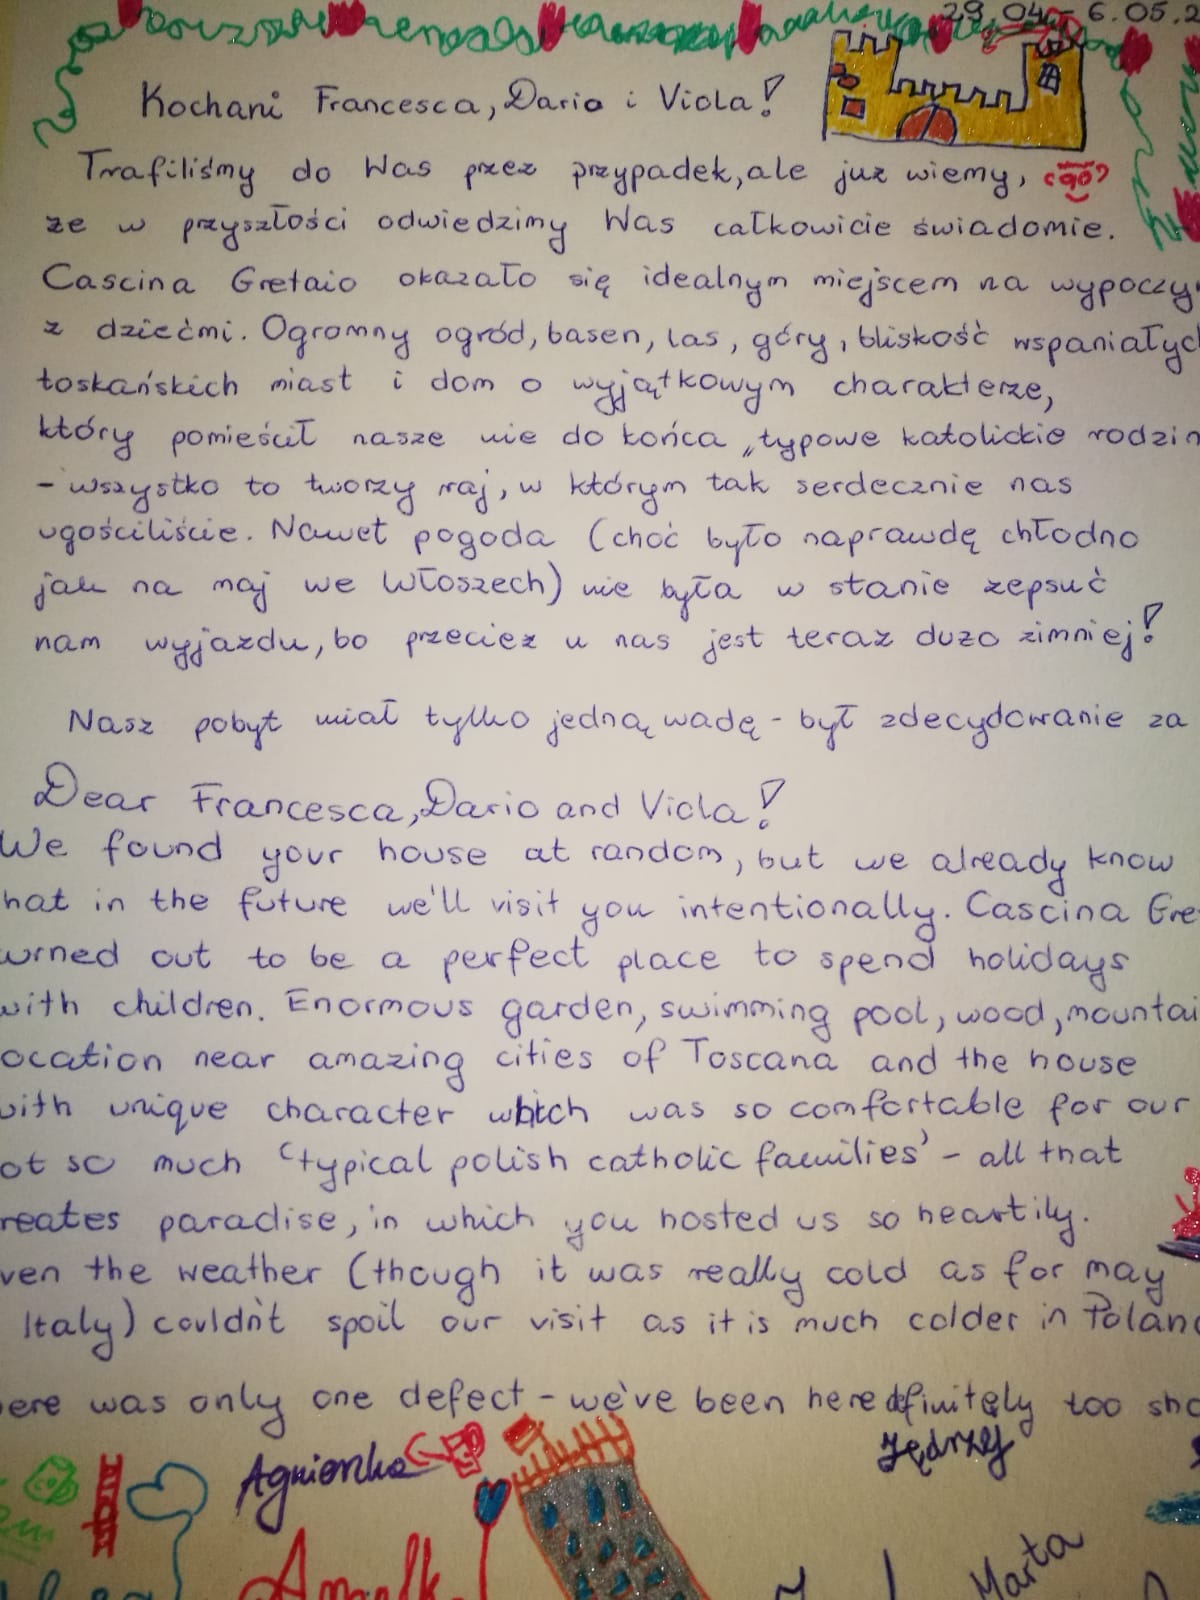 29.04 - 6.05.2
Kochani Francesca, Dario i Viola!
Trafiliśmy do Was przez przypadek, ale już wiemy,
że w przyszłości odwiedzimy Was całkowicie świadomie.
Cascina Gretaio okazało się idealnym miejscem na wypoczy
z dziećmi. Ogromny ogród, basen, las, góry, bliskość wspaniałych
toskańskich miast i dom o wyjątkowym charakterze,
który pomieścił nasze nie do końca „typowe katolickie rodzin
- wszystko to tworzy raj, w którym tak serdecznie nas
ugościliście. Nawet pogoda (choć było naprawdę chłodno
jak na maj we Włoszech) nie była w stanie zepsuć
nam wyjazdu, bo przecież u nas jest teraz dużo zimniej!
Nasz pobyt miał tylko jedną wadę - był zdecydowanie za
Dear Francesca, Dario and Viola!
We found your house at random, but we already know
hat in the future we'll visit you intentionally. Cascina Gre
urned out to be a perfect place to spend holidays
with children. Enormous garden, swimming pool, wood, mountai
ocation near amazing cities of Toscana and the house
with unique character which was so comfortable for our
ot so much 'typical polish catholic families' - all that
reates paradise, in which you hosted us so heartily.
ven the weather (though it was really cold as for may
Italy) couldn't spoil our visit as it is much colder in Poland
ere was only one defect - we've been here definitely too sho
Agnieszka
Jędrzej
Marta